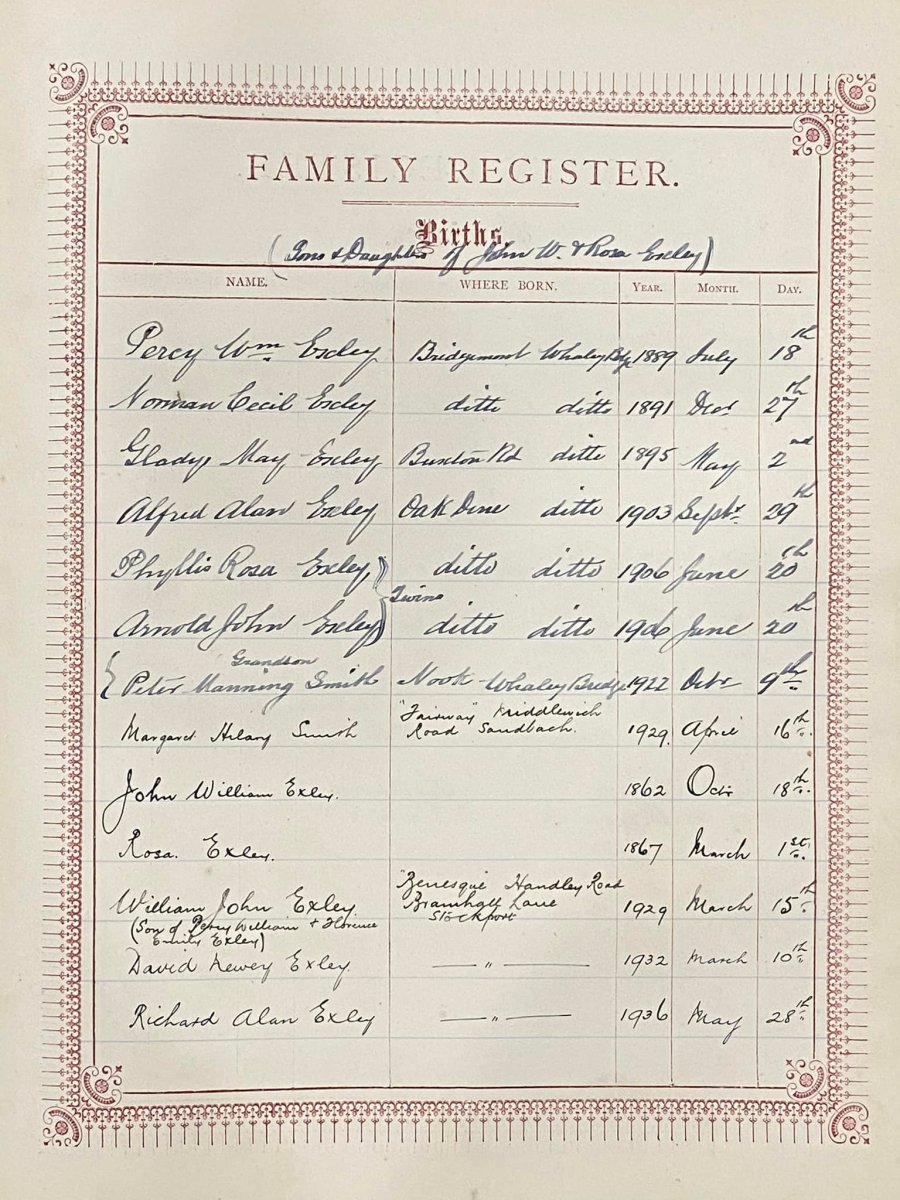 FAMILY REGISTER.
Births.
(Sons & Daughters of John W. & Rosa Exley)
NAME. WHERE BORN. YEAR. MONTH. DAY.
Percy Wm Exley Bridgemont Whaley Bge 1889 July 18th
Norman Cecil Exley ditto ditto 1891 Decr 27th
Gladys May Exley Buxton Rd ditto 1895 May 2nd
Alfred Alan Exley Oak Dene ditto 1903 Septr. 29th
Phyllis Rosa Exley ditto ditto 1906 June 20th
Twins
Arnold John Exley ditto ditto 1906 June 20th
Grandson
Peter Manning Smith Nook Whaley Bridge 1922 Octr 9th
"Fairway" Middlewich
Margaret Hilary Smith Road Sandbach. 1929. April 16th.
John William Exley. 1862 Octr 18th.
Rosa. Exley. 1867 March 1st.
Handley Road
William John Exley. Bramhall Lane 1929 March 15th
(Son of Percy William & Florence Stockport
Emily Exley)
David Newey Exley. — " — 1932 March 10th
Richard Alan Exley — " — 1936 May 28th